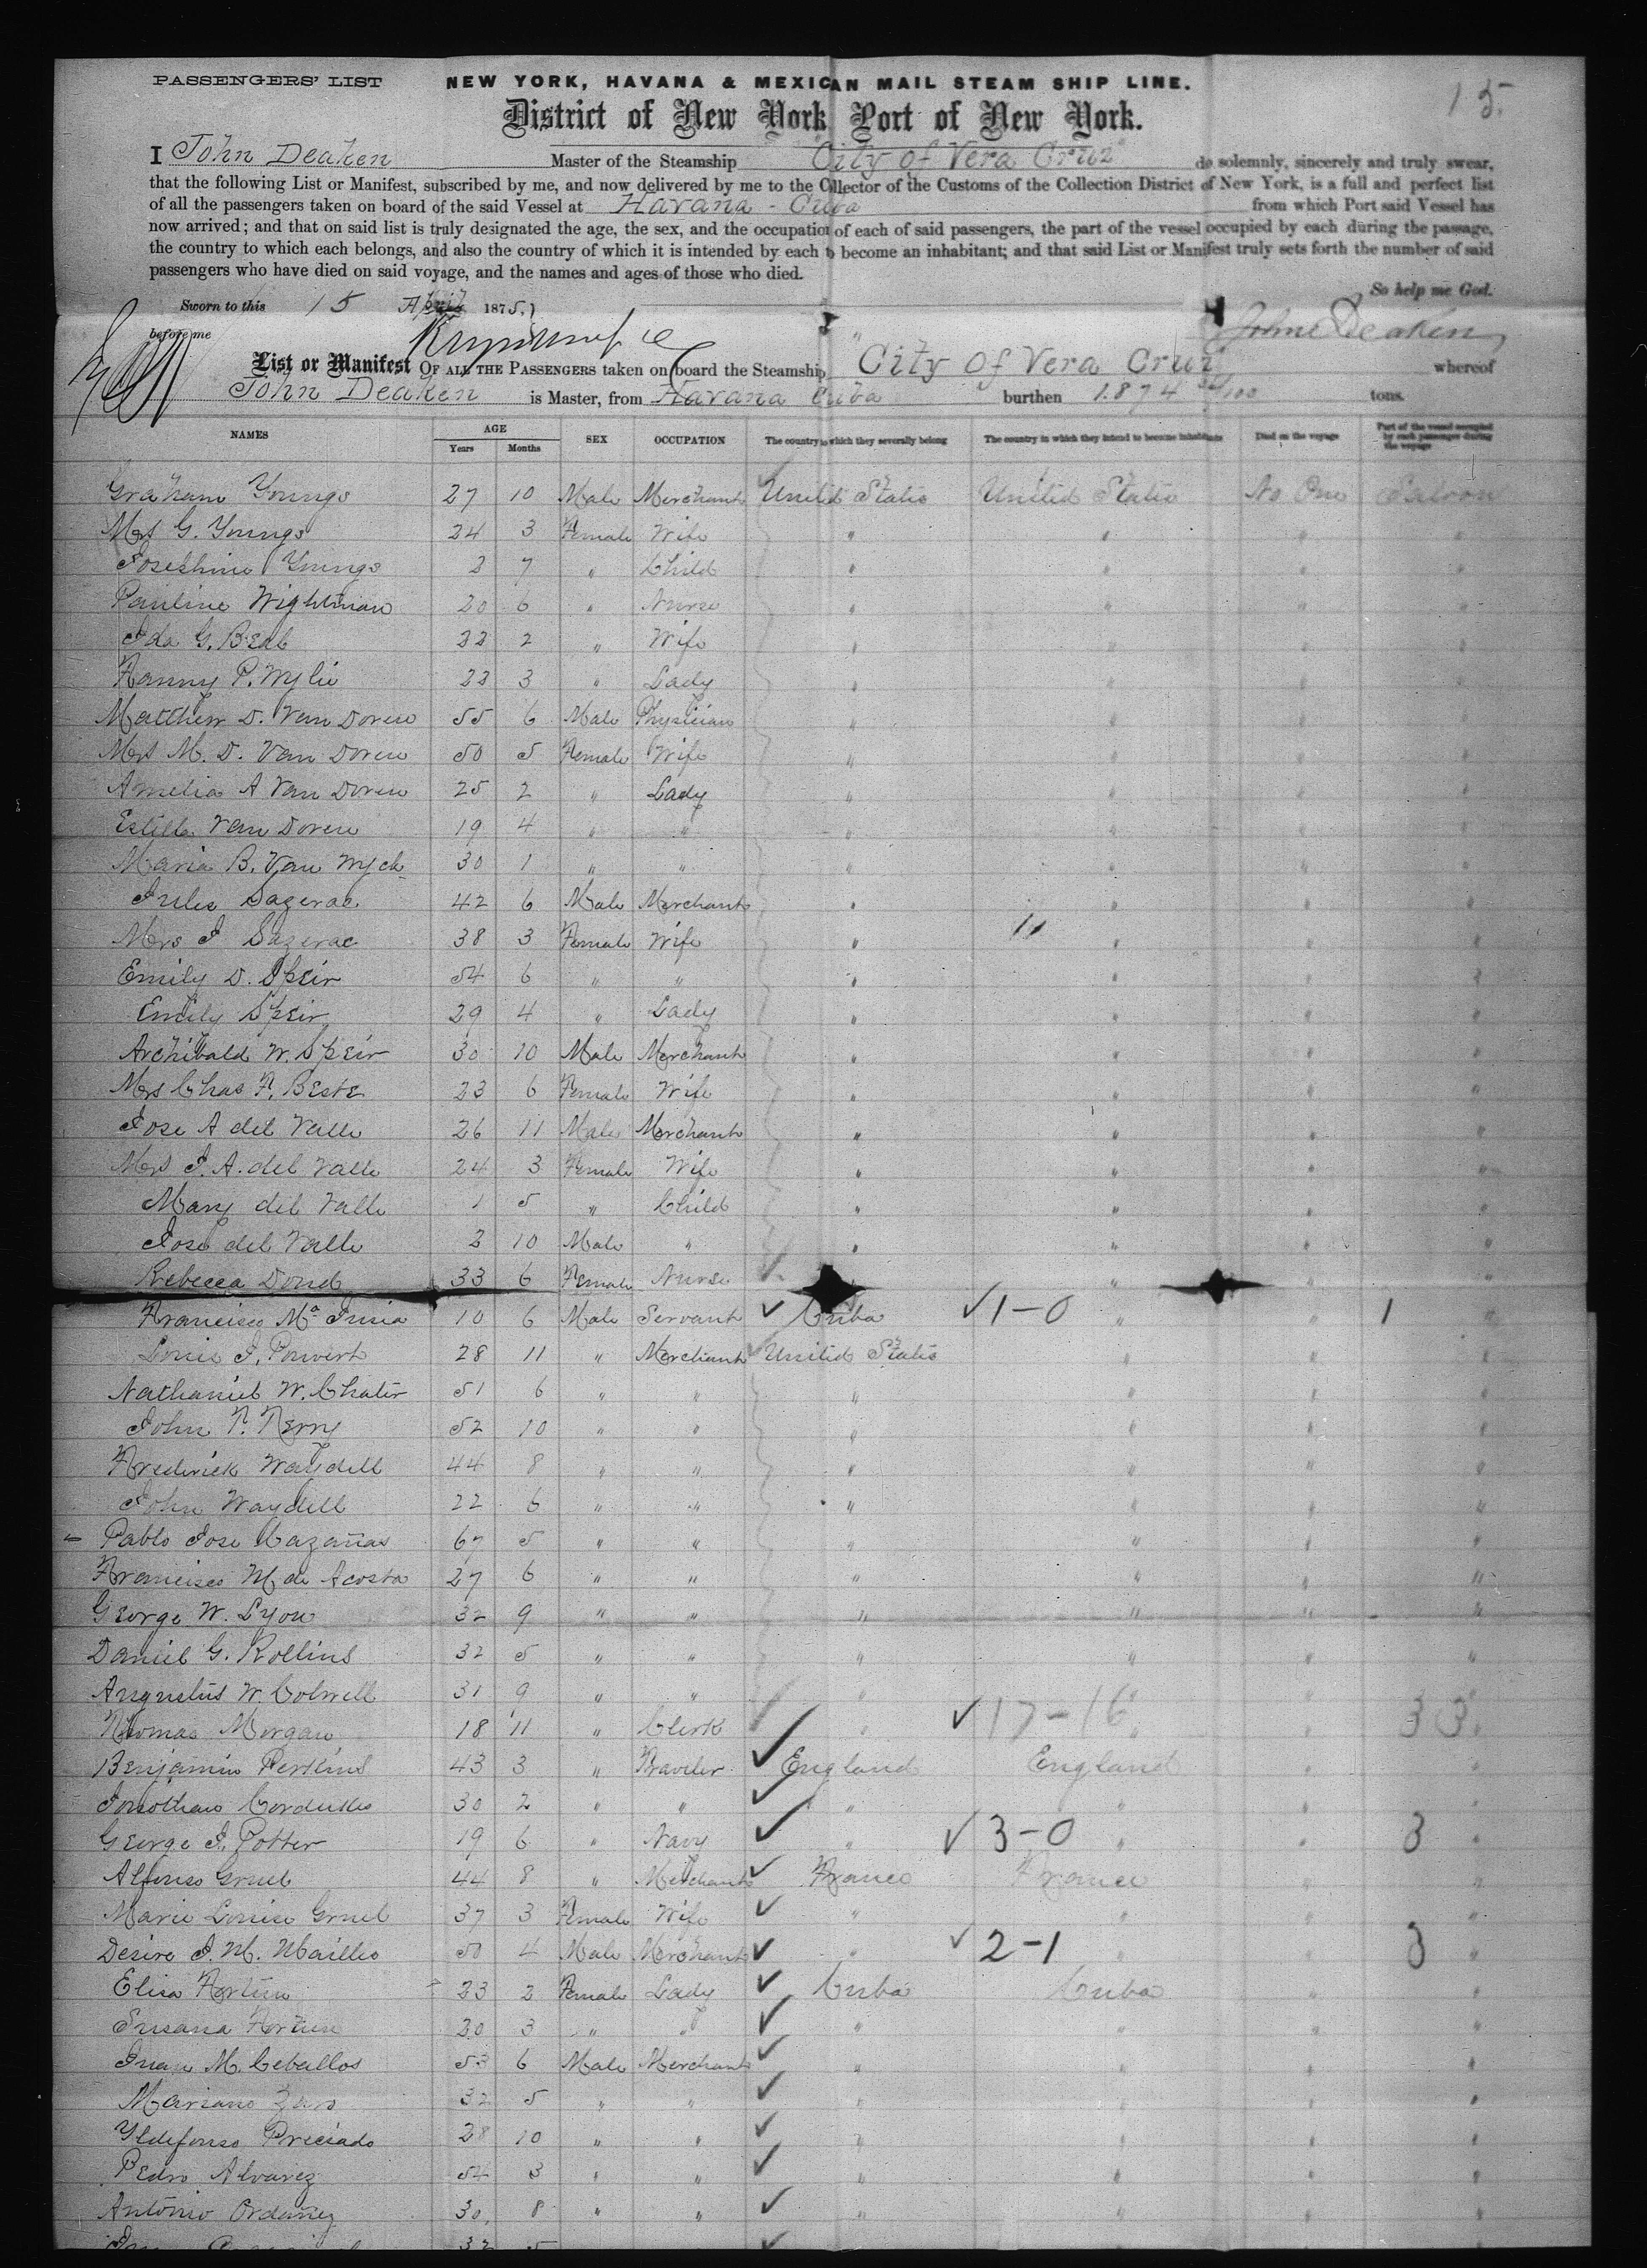 PASSENGERS' LIST NEW YORK, HAVANA & MEXICAN MAIL STEAM SHIP LINE. 15.
District of New York Port of New York.
I John Deaken Master of the Steamship City of Vera Cruz do solemnly, sincerely and truly swear,
that the following List or Manifest, subscribed by me, and now delivered by me to the Collector of the Customs of the Collection District of New York, is a full and perfect list
of all the passengers taken on board of the said Vessel at Havana - Cuba from which Port said Vessel has
now arrived; and that on said list is truly designated the age, the sex, and the occupation of each of said passengers, the part of the vessel occupied by each during the passage,
the country to which each belongs, and also the country of which it is intended by each to become an inhabitant; and that said List or Manifest truly sets forth the number of said
passengers who have died on said voyage, and the names and ages of those who died.
So help me God.
Sworn to this 15 April 1875.
before me John Deaken
List or Manifest OF ALL THE PASSENGERS taken on board the Steamship City of Vera Cruz whereof
John Deaken is Master, from Havana Cuba burthen 1.874 /100 tons.
NAMES AGE Years Months SEX OCCUPATION The country to which they severally belong The country in which they intend to become inhabitants Died on the voyage Part of the vessel occupied by each passenger during the voyage
Graham Youngs 27 10 Male Merchant United States United States No One Saloon
Mrs G. Youngs 24 3 Female Wife " " " "
Josephine Youngs 2 7 " Child " " " "
Pauline Wightman 20 6 " Nurse " " " "
Ida G. Beal 22 2 " Wife " " " "
Fanny P. Wylie 22 3 " Lady " " " "
Matthew D. Van Doren 55 6 Male Physician " " " "
Mrs M. D. Van Doren 50 5 Female Wife " " " "
Amelia A Van Doren 25 2 " Lady " " " "
Van Doren 19 4 " " " " " "
Maria B. Van Wyck 30 1 " " " " " "
Jules Sazerac 42 6 Male Merchant " " " "
Mrs J Sazerac 38 3 Female Wife " " " "
Emily D. Speir 54 6 " " " " " "
Emily Speir 29 4 " Lady " " " "
Archibald W. Speir 30 10 Male Merchant " " " "
Mrs Chas F. Beste 23 6 Female Wife " " " "
Jose A del Valle 26 11 Male Merchant " " " "
Mrs J. A. del Valle 24 3 Female Wife " " " "
Mary del Valle 1 5 " Child " " " "
Jose del Valle 2 10 Male " " " " "
Rebecca Doud 33 6 Female Nurse " " "
Francisco Ma 10 6 Male Servant Cuba 1-0 " " 1 "
Louis J. 28 11 " Merchant United States " " "
Nathaniel W. Chater 51 6 " " " " " "
John T. Terry 52 10 " " " " " "
Frederick Waydell 44 8 " " " " " "
John Waydell 22 6 " " " " " "
Pablo Jose Cazañas 67 5 " " " " " "
Francisco M de Acosta 27 6 " " " " " "
George W. Lyon 32 9 " " " " " "
Daniel G. Rollins 32 5 " " " " " "
Augustus W. Colwell 31 9 " " " " " "
Thomas Morgan 18 11 " Clerk " 17-16 " " 33 "
Benjamin Perkins 43 3 " Traveler England England " "
Jonathan 30 2 " " " " " "
George J. Potter 19 6 " Navy " 3-0 " " 3 "
Alfonso Gruel 44 8 " Merchant France France " "
Marie Louise Gruel 37 3 Female Wife " " " "
Desire J. M. Maillo 50 4 Male Merchant " 2-1 " " 3 "
Elisa Fortun 23 2 Female Lady Cuba Cuba " "
Susana Fortun 20 3 " " " " " "
Juan M. Ceballos 53 6 Male Merchant " " " "
Mariano 32 5 " " " " " "
Yldefonso Preciado 28 10 " " " " " "
Pedro Alvarez 54 3 " " " " " "
Antonio Ordoñez 30 8 " " " " " "
32 5